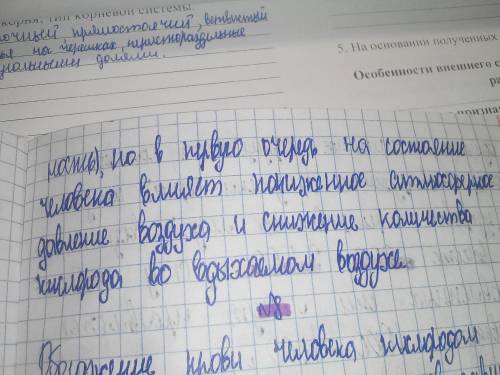 корня, тип корневой системы.
прямостоячий, ветвистый
на черешках, перистораздельные
долями.
5. На основании полученных
Особенности внешнего с
ра
признан
ность), но в первую очередь на состояние
человека влияет пониженное атмосферное
давление воздуха и снижение количества
кислорода во вдыхаемом воздухе.
№8
крови человека кислородом